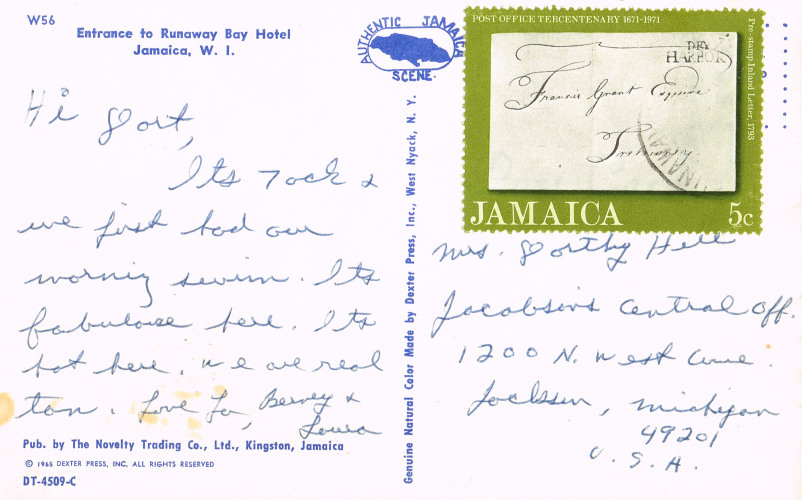 W56
Entrance to Runaway Bay Hotel
Jamaica, W. I.
AUTHENTIC JAMAICA
SCENE
POST OFFICE TERCENTENARY 1671-1971
Pre-stamp Inland Letter, 1793
DRY
HARBOR
Francis Grant Esquire
JAMAICA 5c
Hi Dort,
Its 7 ock &
we first had our
morning swim. Its
fabulouse here. Its
hot here, we are real
tan. Love Ya,
Pub. by The Novelty Trading Co., Ltd., Kingston, Jamaica
© 1965 DEXTER PRESS, INC. ALL RIGHTS RESERVED
DT-4509-C
Genuine Natural Color Made by Dexter Press, Inc., West Nyack, N. Y.
Mrs. Dorthy Hell
Jacobsons Central Off.
1200 N. West Ave.
Jackson, Michigan
49201
U. S. A.